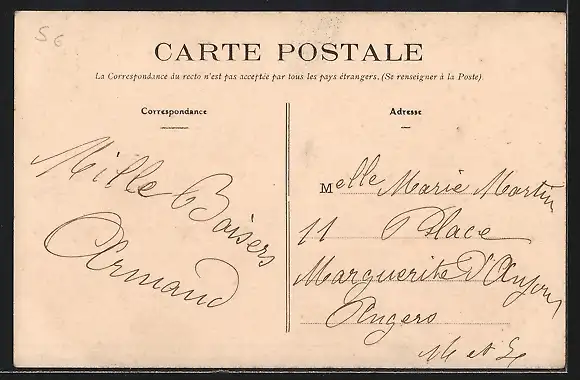 5 €
CARTE POSTALE
La Correspondance du recto n'est pas acceptée par tous les pays étrangers. (Se renseigner à la Poste)
Correspondance
Adresse
Mille Baisers
Armand
Melle Marie Martin
11 Place
Marguerite D'Anjou
Angers
M et L